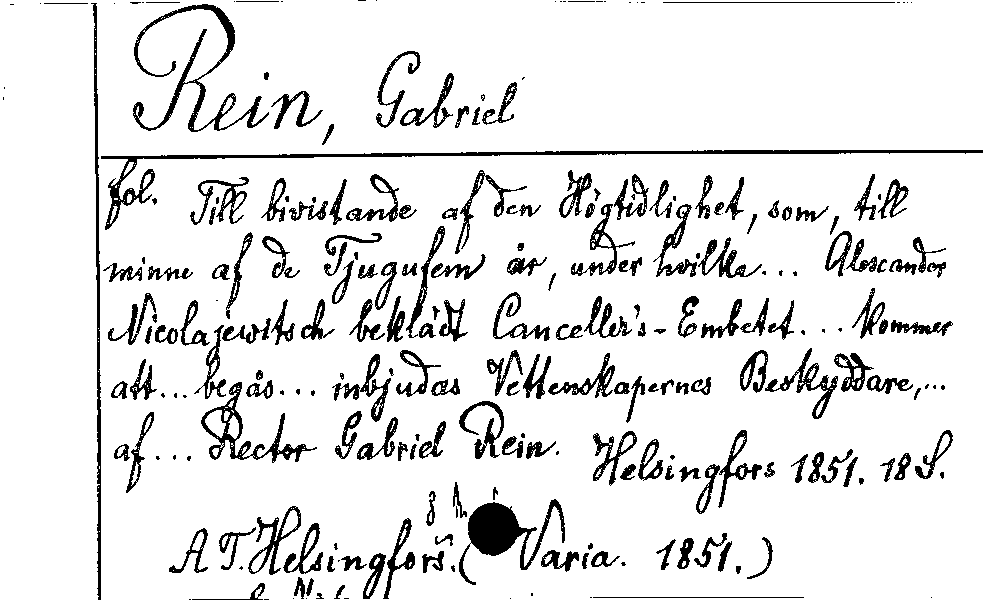 Rein, Gabriel
fol. Till bivistande af den Högtidlighet, som, till
minne af de Tjugufem år, under hvilka... Alexander
Nicolajewitsch beklädt Canceller's-Embetet... kommer
att... begås... inbjudas Vettenskapernes Beskyddare,...
af... Rector Gabriel Rein. Helsingfors 1851. 18 S.
A T. Helsingfors. ( Varia. 1851.)